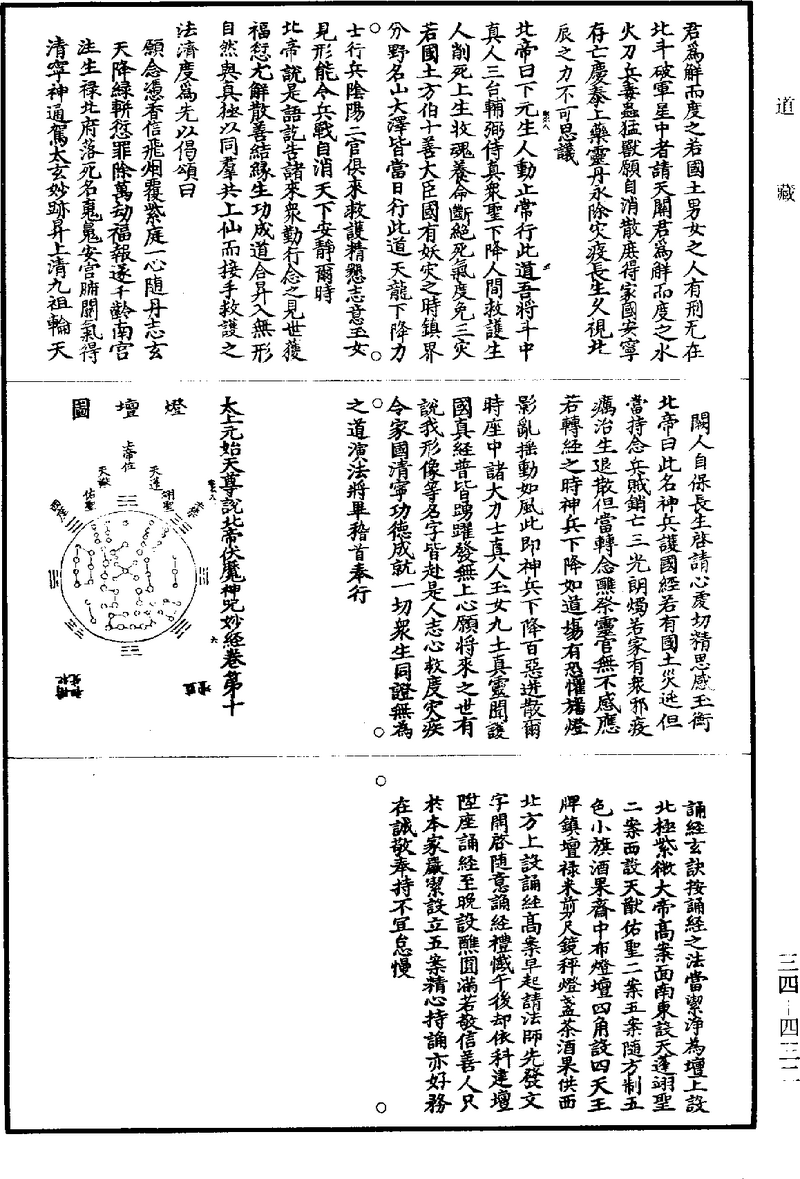 道藏
君為解而度之若國土男女之人有刑尅在
北斗破軍星中者請天關君為解而度之水
火刀兵毒蟲猛獸願自消散庶得家國安寧
存亡慶泰上藥靈丹永除灾疫長生久視北
辰之力不可思議
北帝曰下元生人動止常行此道吾將斗中
真人三台輔弼侍真衆聖下降人間救護生
人削死上生收魂養命斷絕死氣度免三灾
若國土方伯十善大臣國有妖灾之時鎮界
分野名山大澤皆當日行此道天龍下降力
士行兵陰陽二官俱來救護精懇志意玉女
見形能令兵戰自消天下安靜爾時
北帝說是語訖告諸來衆勤行念之見世獲
福愆尤解散善結緣生功成道合昇入無形
自然與真極以同羣共上仙而接手救護之
法濟度為先以偈頌曰
願念憑香信飛烟覆紫庭一心随丹志玄
天降緑軿愆罪除萬劫福報遂千齡南宮
注生禄北府落死名蒐蒐安宮腑關氣得
清寧神通駕太玄妙跡昇上清九祖輪天
闕人自保長生啓請心處切精思感玉衛
北帝曰此名神兵護國經若有國土災逆但
當持念兵賊銷亡三光朗燭若家有衆邪疫
癘治生退散但當轉念醮祭靈官無不感應
若轉經之時神兵下降如道場有恐懼旛燈
影亂揺動如風此即神兵下降百惡迸散爾
時座中諸大力士真人玉女九土真靈聞說
國真經普皆踴躍發無上心願將來之世有
說我形像等名字皆赴是人志心救度灾疾
令家國清寧功德成就一切衆生同證無為
之道演法將畢稽首奉行
太上元始天尊說北帝伏魔神呪妙經卷第十
燈壇圖
上帝位
天蓬
翊聖
天猷
佑聖
誦經玄訣按誦經之法當潔淨為壇上設
北極紫微大帝高案面南東設天蓬翊聖
二案西設天猷佑聖二案五案随方制五
色小旗酒果齋中布燈壇四角設四天王
牌鎮壇禄米剪尺鏡秤燈盞茶酒果供西
北方上設誦經高案早起請法師先發文
字開啓随意誦經禮懺午後却依科建壇
陞座誦經至晚設醮圓滿若敬信善人只
於本家嚴潔設立五案精心持誦亦好務
在誠敬奉持不宜怠慢
三四—四三二